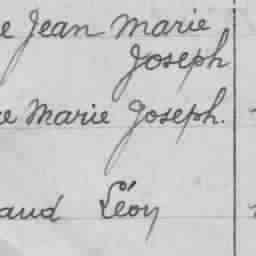 e Jean Marie
Joseph
e Marie Joseph.
aud Léon